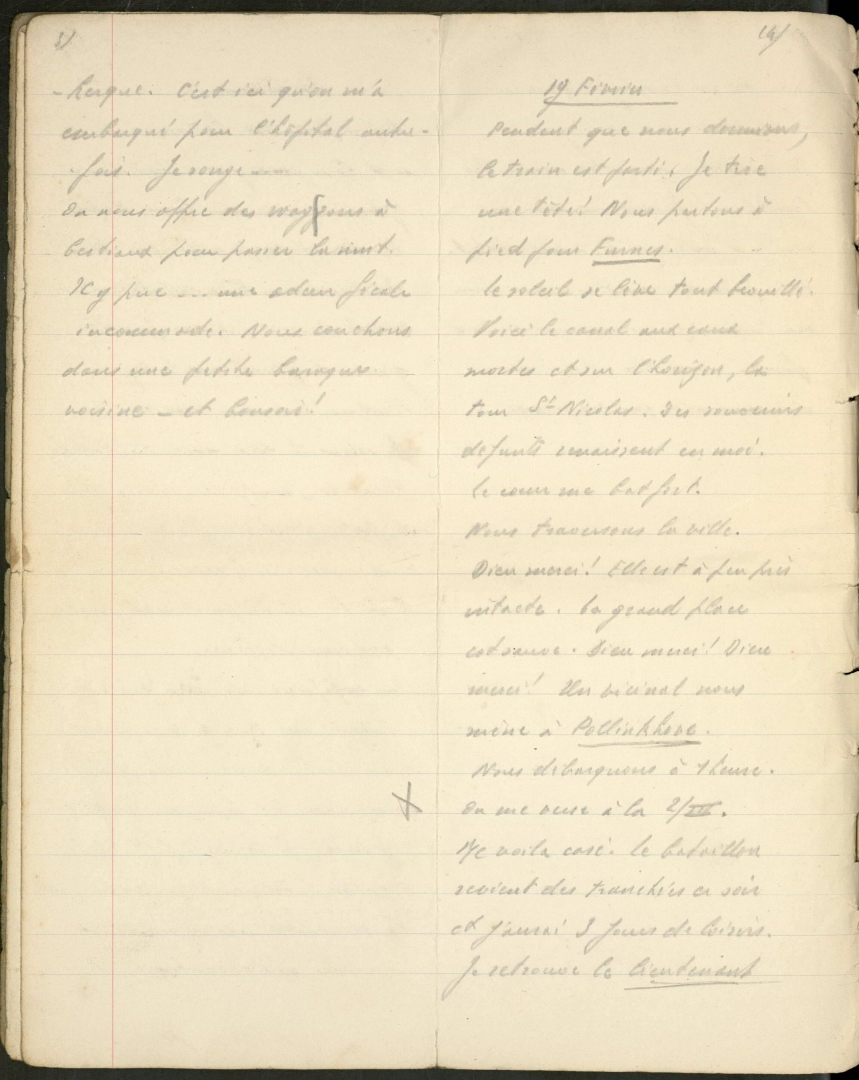 - kerque. C'est ici qu'on m'a
embarqué pour l'hôpital autre-
- fois. Je songe ---
On nous offre des wagons à
bestiaux pour passer la nuit.
Il y pue --- une odeur fécale
incommode. Nous couchons
dans une petite baraque
voisine - et bonsoir!
19 Février
Pendant que nous dormions,
le train est parti. Je tire
une tête! Nous partons à
pied pour Furnes.
Le soleil se lève tout brouillé.
Voici le canal aux eaux
mortes et sur l'horizon, la
tour St-Nicolas. Des souvenirs
défunts renaissent en moi.
Le cœur me bat fort.
Nous traversons la ville.
Dieu merci! Elle est à peu près
intacte. La grand place
est sauve. Dieu merci! Dieu
merci! Un vicinal nous
mène à Pollinkhove.
Nous débarquons à 1 heure.
On me verse à la 2/III.
Me voila casé. Le bataillon
revient des tranchées ce soir
et j'aurai 3 jours de loisirs.
Je retrouve le lieutenant